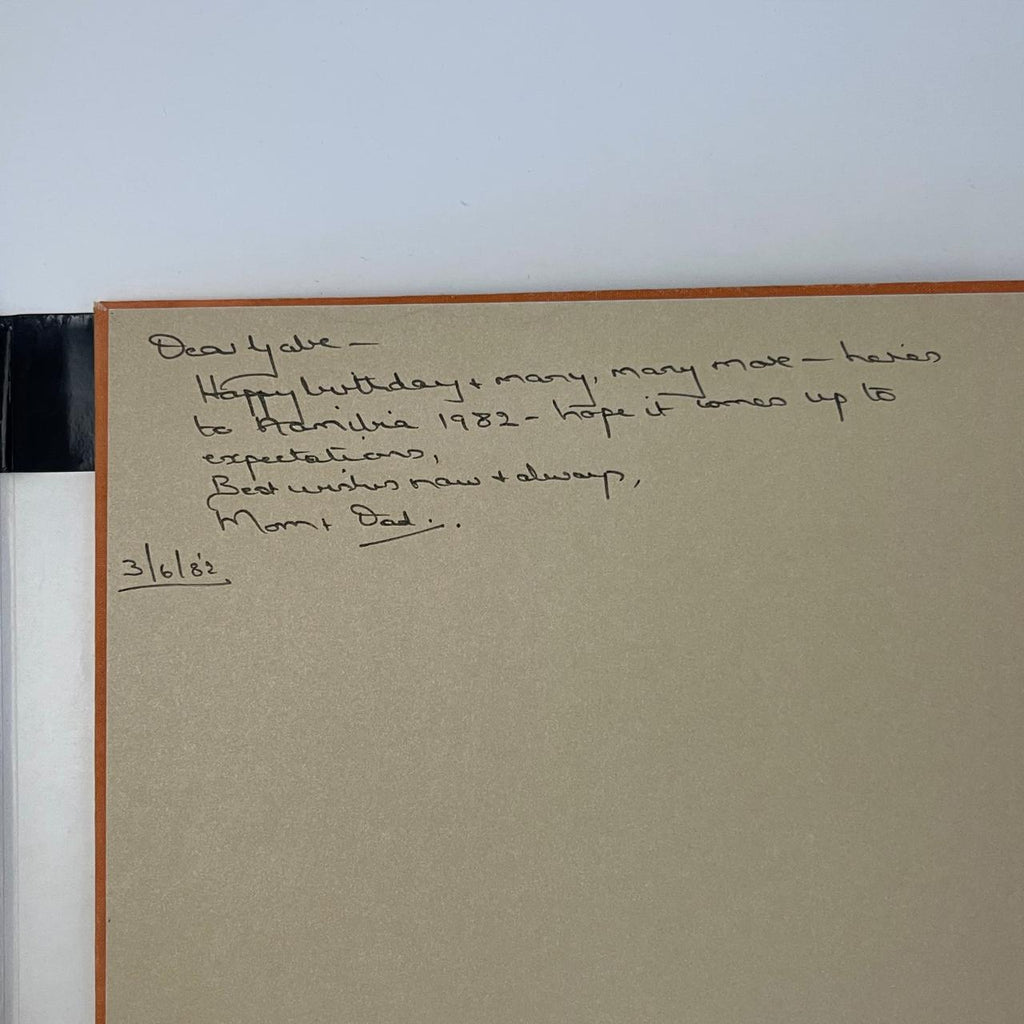 Dear Gabe —
Happy birthday + many, many more — here's
to Namibia 1982 - hope it comes up to
expectations,
Best wishes now + always,
Mom + Dad..
3/6/82.